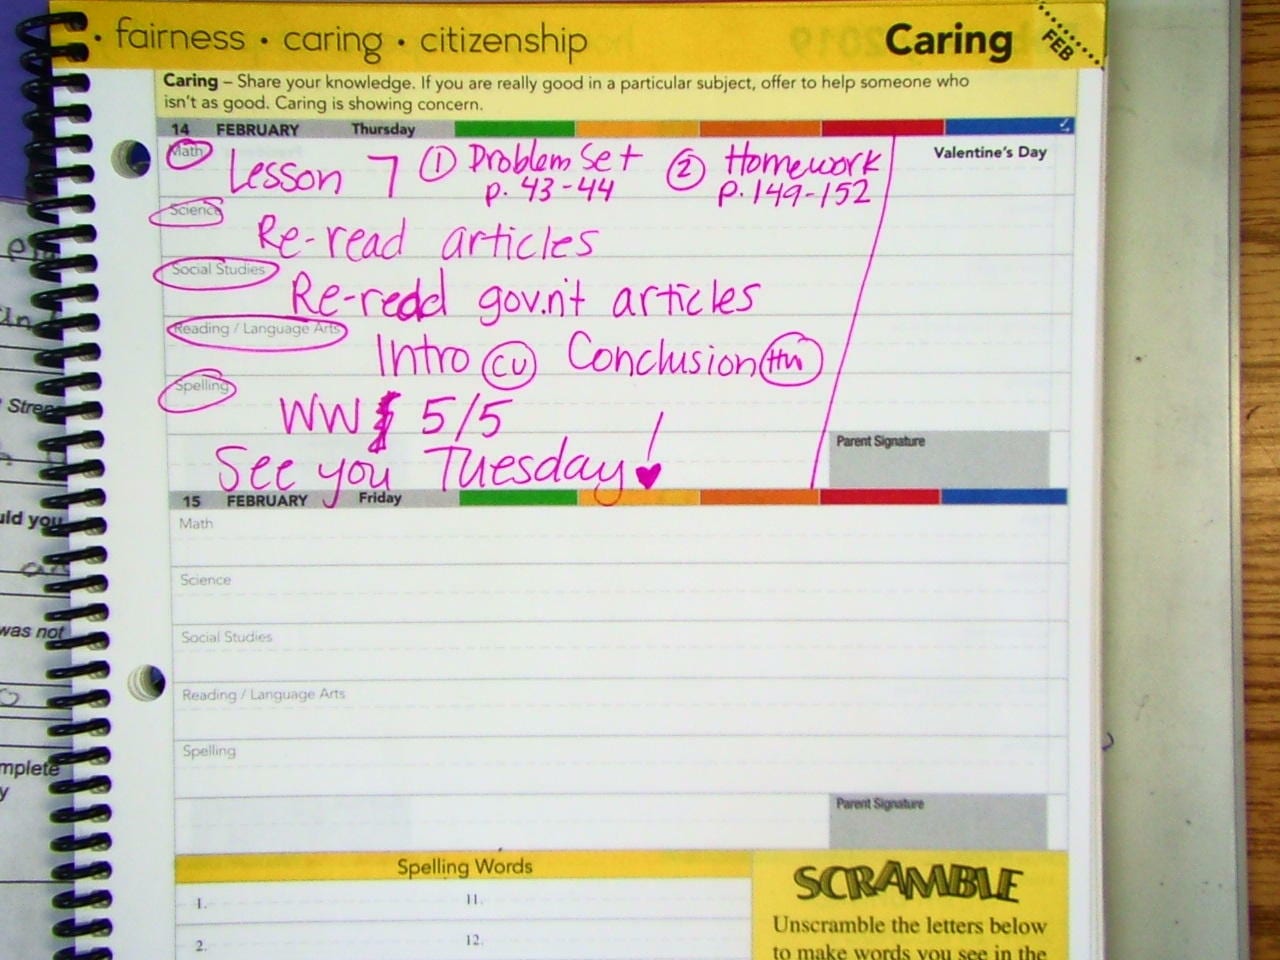 • fairness • caring • citizenship
Caring
FEB
Caring – Share your knowledge. If you are really good in a particular subject, offer to help someone who
isn't as good. Caring is showing concern.
14 FEBRUARY Thursday
Math Lesson 7 ① Problem Set ② Homework
p. 43-44 p. 149-152
Valentine's Day
Science
Re-read articles
Social Studies
Re-read gov.n't articles
Reading / Language Arts
Intro CU Conclusion HW
Spelling
WW 5/5
See you Tuesday!
Parent Signature
15 FEBRUARY Friday
Math
Science
Social Studies
Reading / Language Arts
Spelling
Parent Signature
Spelling Words
1. 11.
2. 12.
SCRAMBLE
Unscramble the letters below
to make words you see in the
uld you
was not
mplete
y